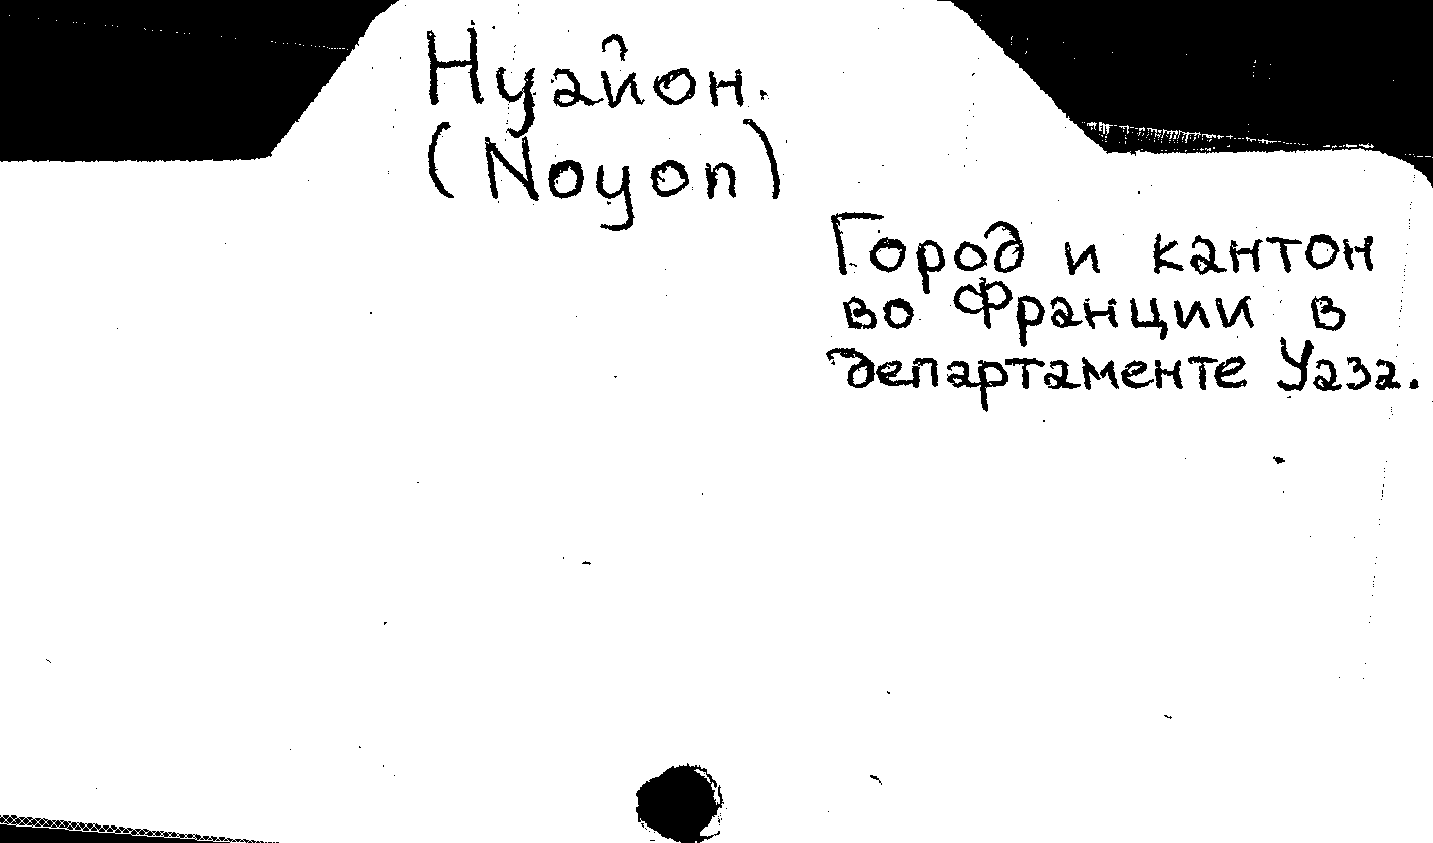 Нуайон.
(Noyon)
Город и кантон
во Франции в
департаменте Уаза.